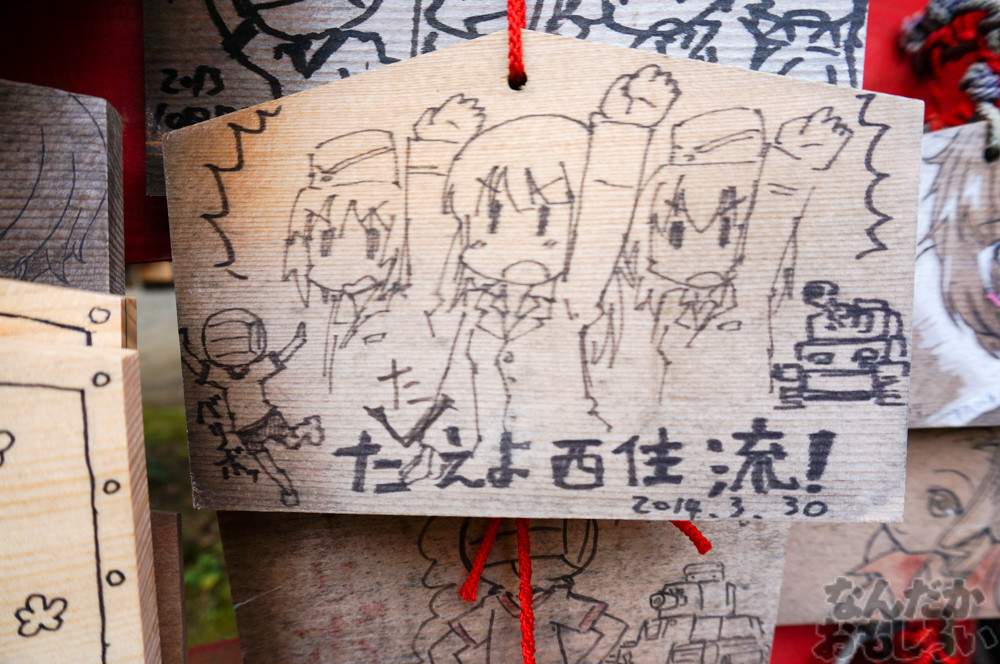 2013
た
たえよ西住流!
2014.3.30
なんだか
おもしろい